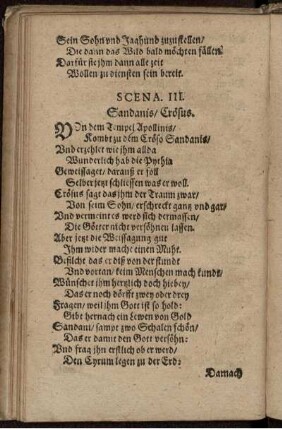 Sein Sohn vnd Jaghund zuzustellen/
Die dann das Wild bald möchten fällen:
Darfür sie jhm dann alle zeit
Wollen zu diensten sein bereit.
SCENA. III.
Sandanis/ Crösus.
VOn dem Tempel Apollinis/
Kombt zu dem Cröso Sandanis/
Vnd erzehlet wie jhm allda
Wunderlich hab die Pythia
Geweissaget/ darauß er soll
Selber jetzt schliessen was er woll.
Crösus sagt das jhm der Traum zwar/
Von seim Sohn/ erschreckt gantz vnd gar/
Vnd vermeint es werd sich dermassen/
Die Götter nicht versöhnen lassen.
Aber jetzt die Weissagung gut
Ihm wider mache einen Muht.
Befilcht das er diß von der stund
Vnd vortan/ keim Menschen mach kundt/
Wünschet jhm hertzlich doch hiebey/
Das er noch dörfft zwey oder drey
Fragen/ weil jhm Gott ist so hold:
Gibt hernach ein Lewen von Gold
Sandani/ sampt zwo Schalen schön/
Das er damit den Gott versöhn:
Vnd frag jhn erstlich ob er werd/
Den Cyrum legen zu der Erd:
Darnach